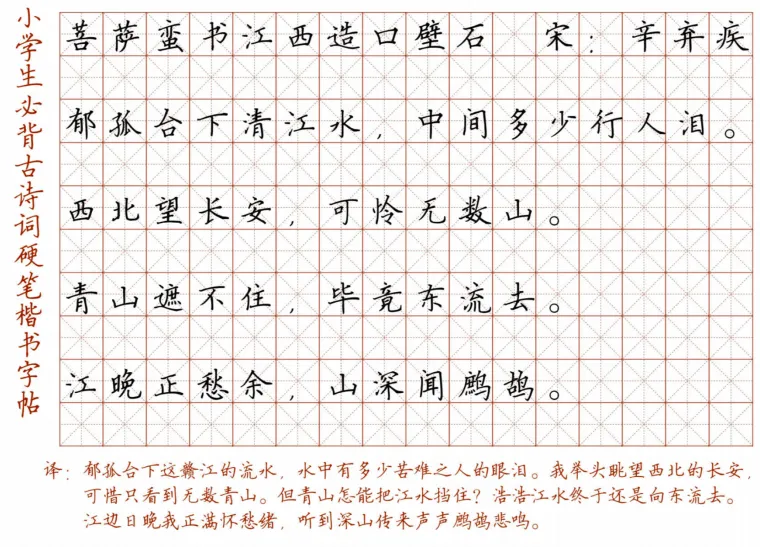 小学生必背古诗词硬笔楷书字帖
菩萨蛮书江西造口壁石 宋：辛弃疾
郁孤台下清江水，中间多少行人泪。
西北望长安，可怜无数山。
青山遮不住，毕竟东流去。
江晚正愁余，山深闻鹧鸪。
译：郁孤台下这赣江的流水，水中有多少苦难之人的眼泪。我举头眺望西北的长安，
可惜只看到无数青山。但青山怎能把江水挡住？浩浩江水终于还是向东流去。
江边日晚我正满怀愁绪，听到深山传来声声鹧鸪悲鸣。